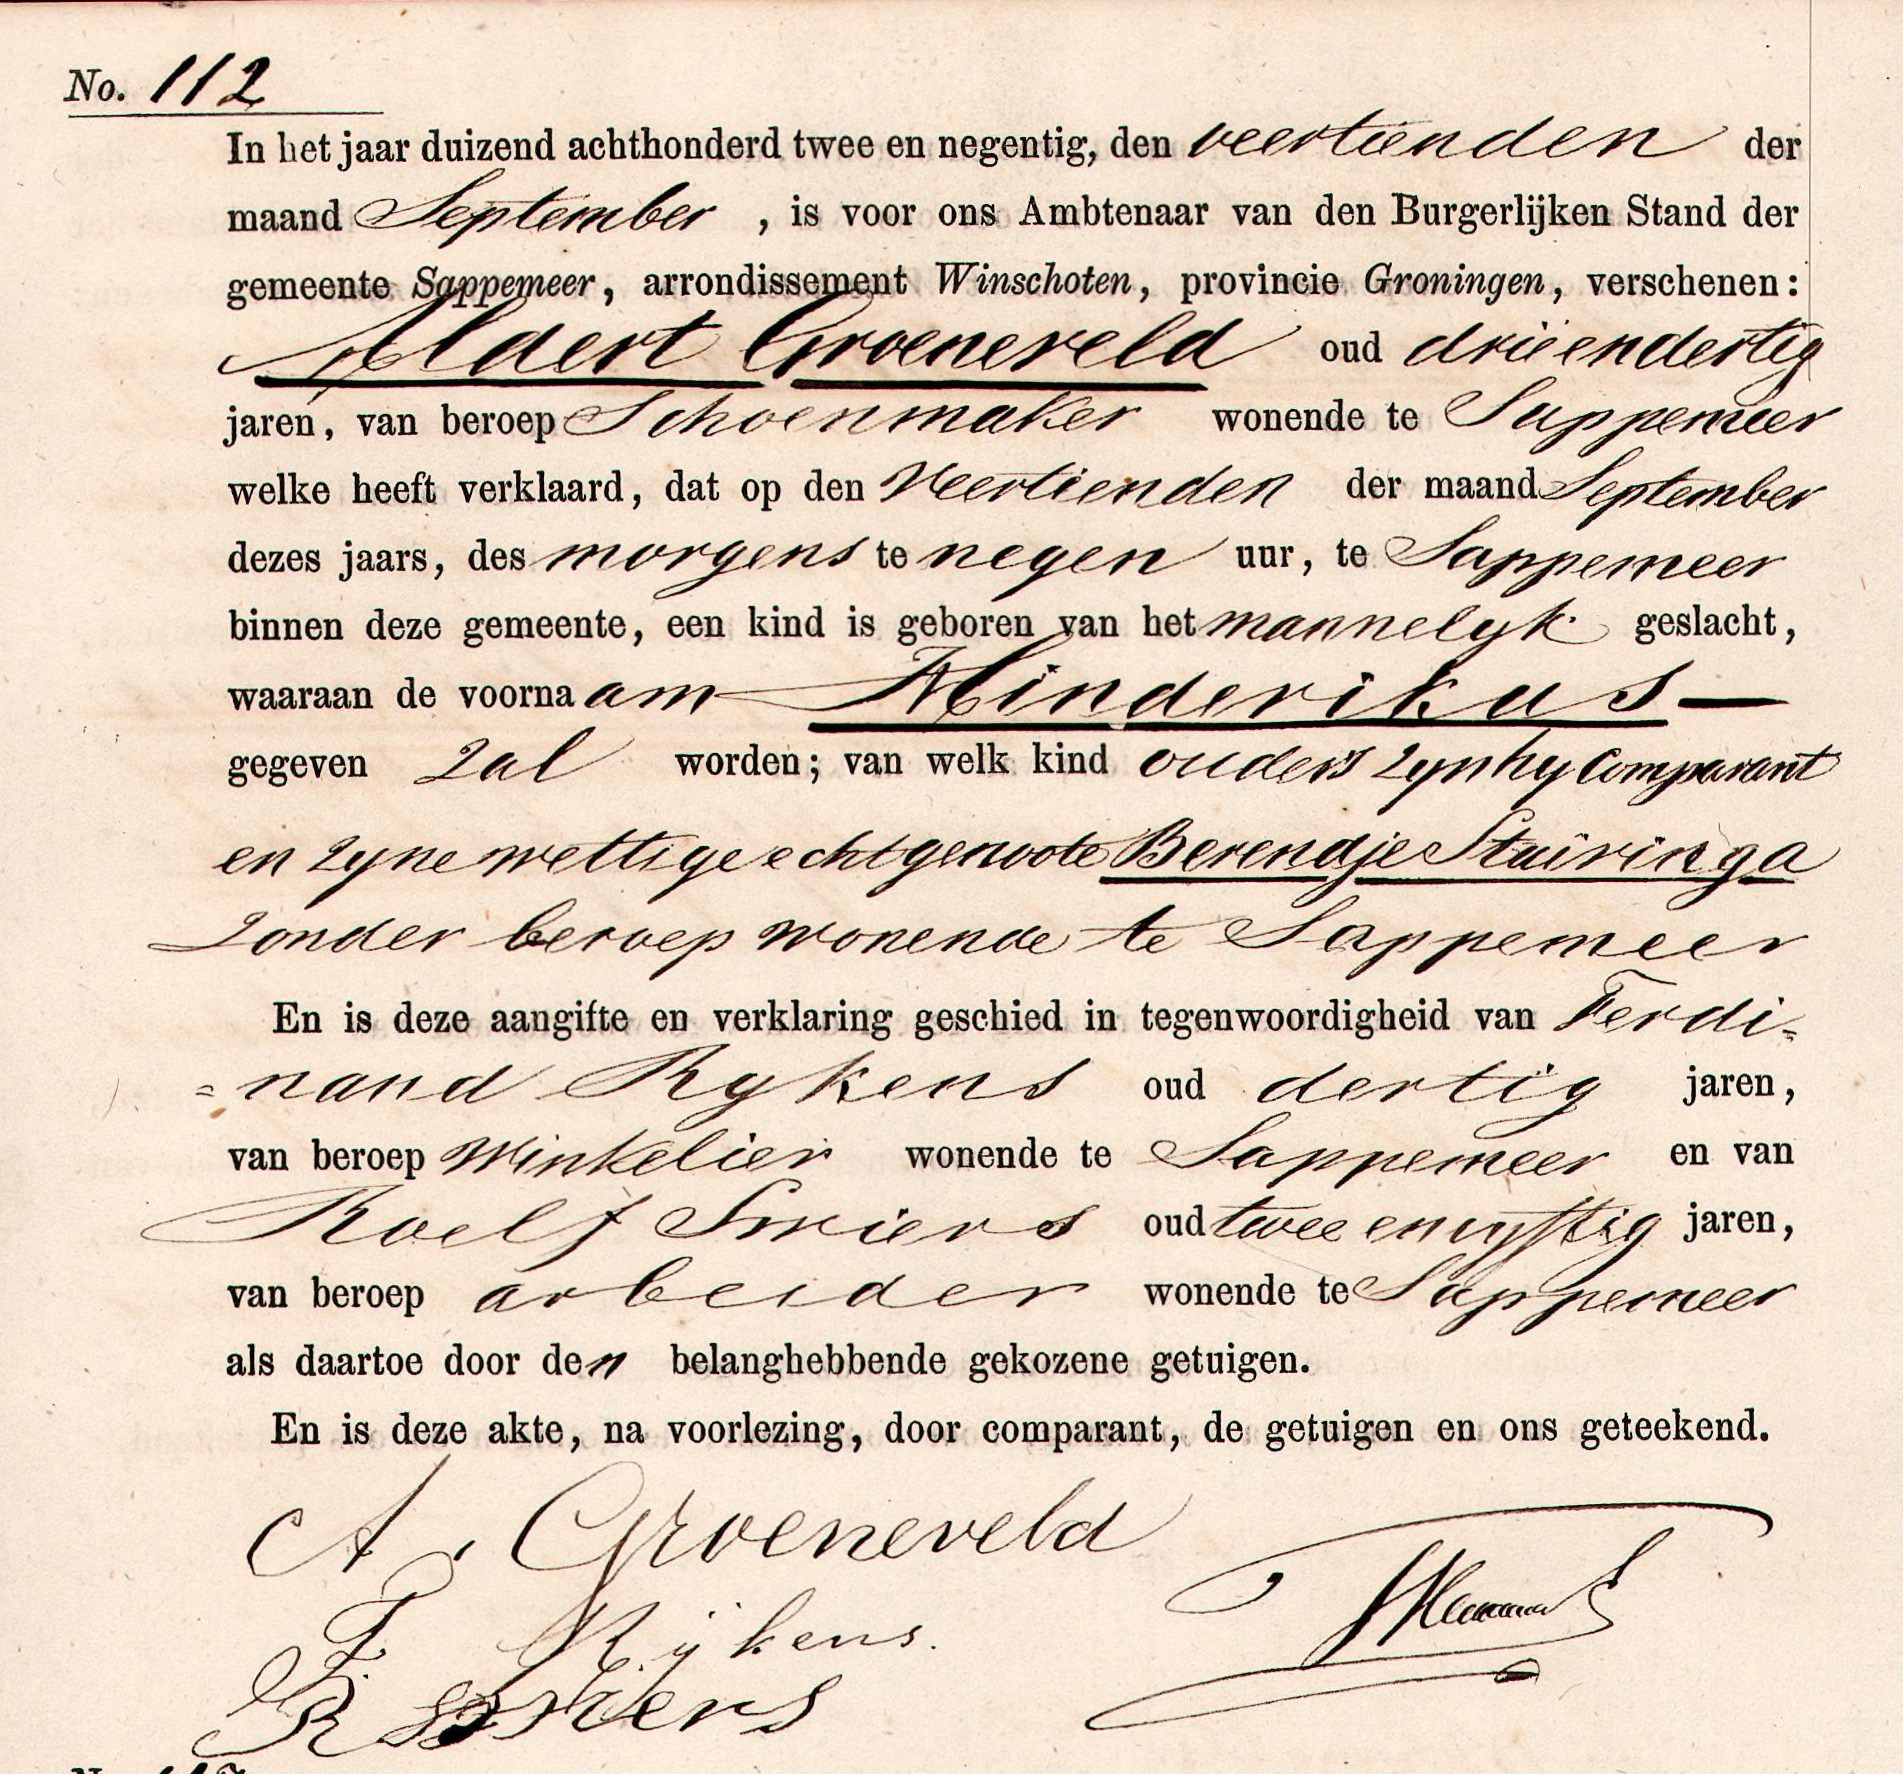 No. 112
In het jaar duizend achthonderd twee en negentig, den veertienden der
maand September , is voor ons Ambtenaar van den Burgerlijken Stand der
gemeente Sappemeer, arrondissement Winschoten, provincie Groningen, verschenen:
Aldert Groeneveld oud drieendertig
jaren, van beroep Schoenmaker wonende te Sappemeer
welke heeft verklaard, dat op den Veertienden der maand September
dezes jaars, des morgens te negen uur, te Sappemeer
binnen deze gemeente, een kind is geboren van het mannelyk geslacht,
waaraan de voornaam Hinderikus
gegeven zal worden; van welk kind ouders zyn hy Comparant
en zyne wettige echtgenoote Berendje Stuiringa
zonder beroep wonende te Sappemeer
En is deze aangifte en verklaring geschied in tegenwoordigheid van Ferdi-
=nand Rykens oud dertig jaren,
van beroep Winkelier wonende te Sappemeer en van
Roelf Smiers oud twee en vyftig jaren,
van beroep arbeider wonende te Sappemeer
als daartoe door den belanghebbende gekozene getuigen.
En is deze akte, na voorlezing, door comparant, de getuigen en ons geteekend.
A. Groeneveld
F. Rijkens.
R